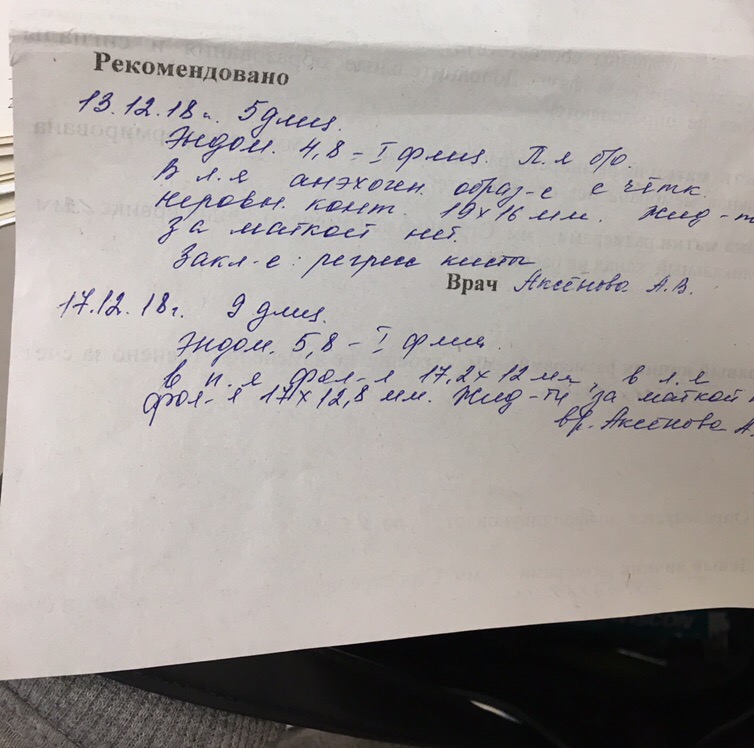 Рекомендовано
13.12.18г. 5 дмц.
Эндом. 4,8 - I фмц. П.я б/о.
В л.я анэхоген. образ-е с чётк.
неровн. конт. 19х16 мм. Жид-т
за маткой нет.
Закл-е: регресс кисты
Врач Аксёнова А.В.
17.12.18г. 9 дмц.
Эндом. 5,8 - I фмц.
в п.я фол-л 17,2х12 мм, в л.я
фол-л 17х12,8 мм. Жид-ти за маткой н
вр. Аксёнова А.